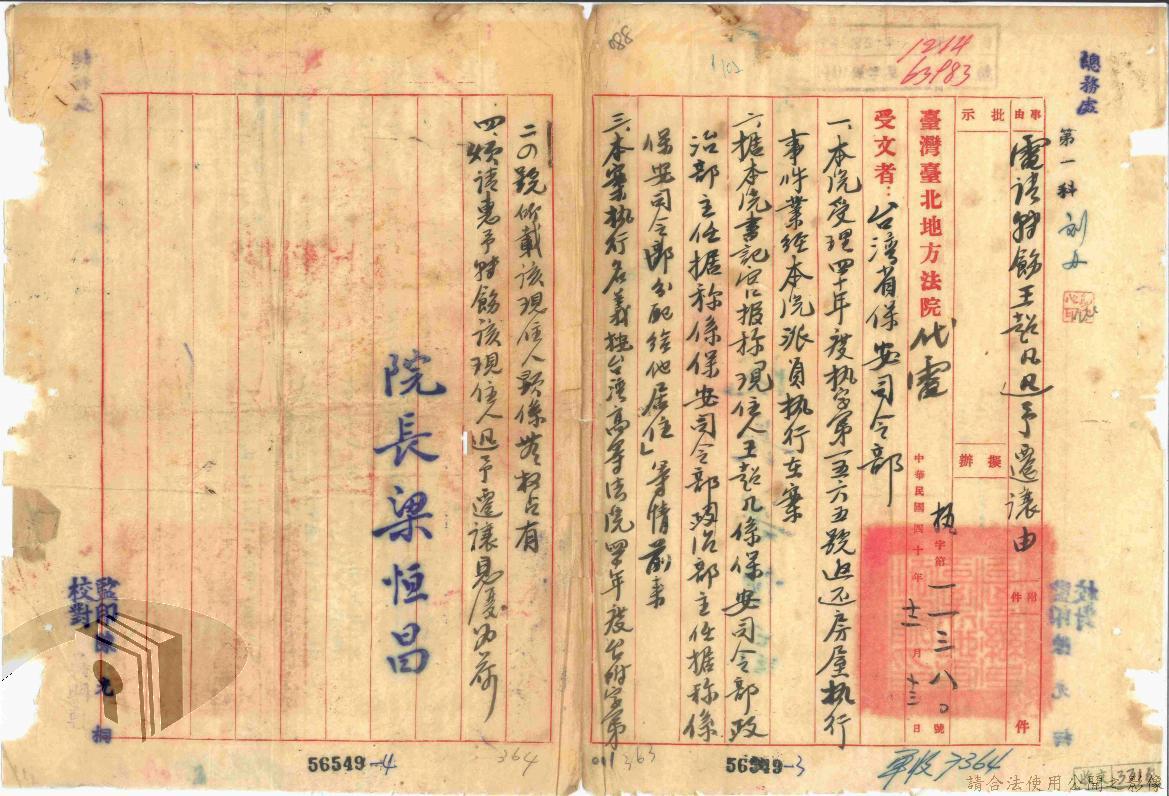 總務處
第一科
1214
63983
386
102
事由
電請特飭王超凡迅予遷讓由
附件
件
批示
擬辦
臺灣臺北地方法院
代電
中華民國四十年十二月十三日
執字第一一三八〇號
受文者：台湾省保安司令部
一、本院受理四十年度执字第一五六五號返还房屋执行
事件業經本院派員执行在案
二、據本院書記官报称現住人王超凡係保安司令部政
治部主任据称係保安司令部政治部主任据称係
保安司令部分配给他居住」等情前来
三、本案执行名義独台湾高等法院四十年度上附字第
二〇號所載该現住人顯係無权占有
四、煩请惠予特飭该現住人迅予遷讓見復为荷
院長梁恒昌
監印陳光桐
校對
56549-4
364
363
56549-3
軍收7364
請合法使用公開之影像